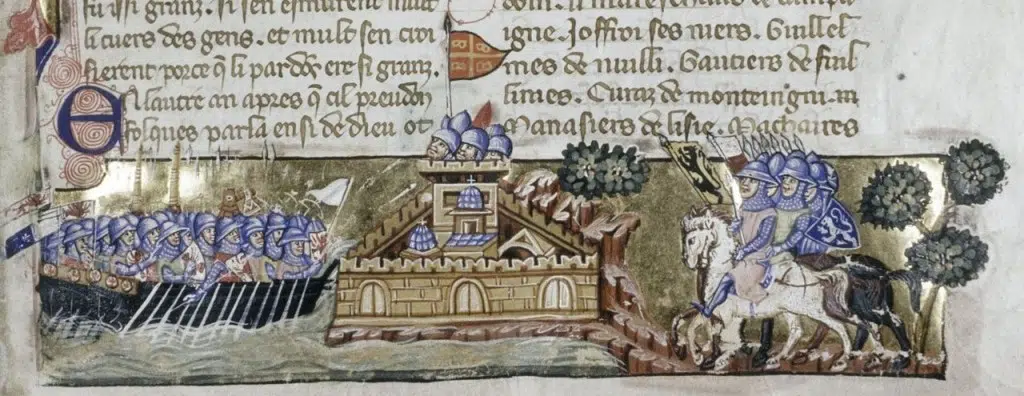 fu issi granz. Si sen esmurent mult
li cuers des gens. et mult sen croi
sierent porce q̃ li pardōs ere si granz.
En lautre an apres q̃ cil preudon
folques parla ensi de dieu ot
igne. Joffroi ses niers. Guillel
mes de nuilli. Gautiers de fuil
limes. Curaz de monteingni.
Manasiers de lisle. Machaires